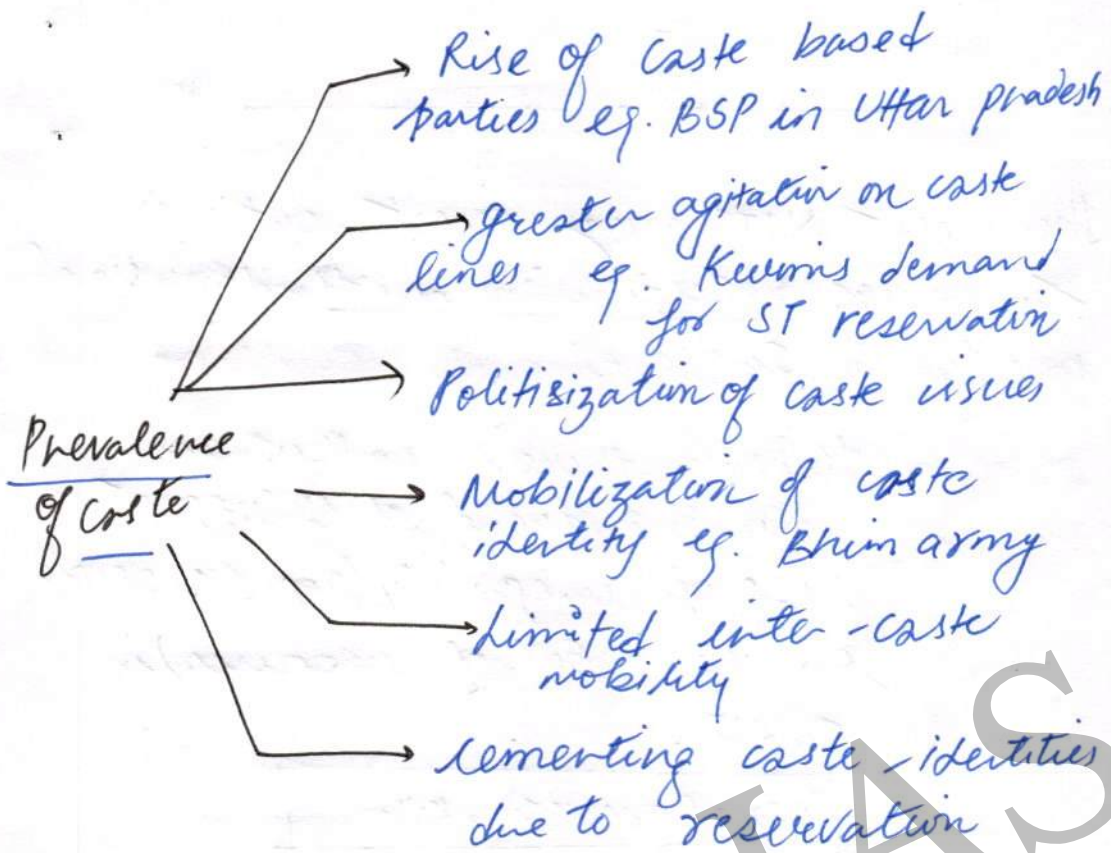 Rise of caste based
parties eg. BSP in Uttar pradesh
greater agitation on caste
lines eg. Kurmis demand
for ST reservation
Politisization of caste issues
Prevalence
of caste
Mobilization of caste
identity eg. Bhim army
Limited inter-caste
mobility
Cementing caste-identities
due to reservation
IAS